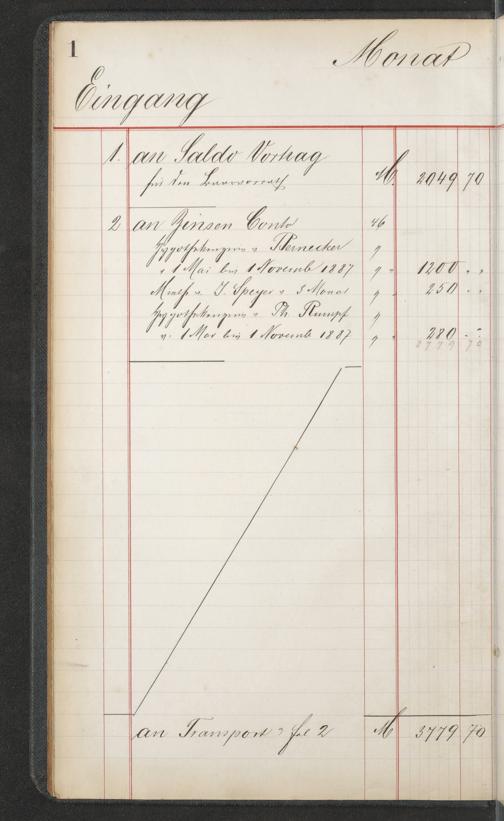 1
Monat
Eingang
1. an Saldo Vortrag
für den Baarvorrath M. 2049 70
2 an Zinsen Conto 46
Hypothekzinsen v.
v. 1 Mai bis 1 Novemb 1887 1200 . .
Mieth v. J. Speyer v. 3 Monat 250 . .
Hypothekzinsen v. Ph. Rumpf
v. 1 Mai bis 1 Novemb 1887 280 . .
3779 70
an Transport fol 2 M 3779 70